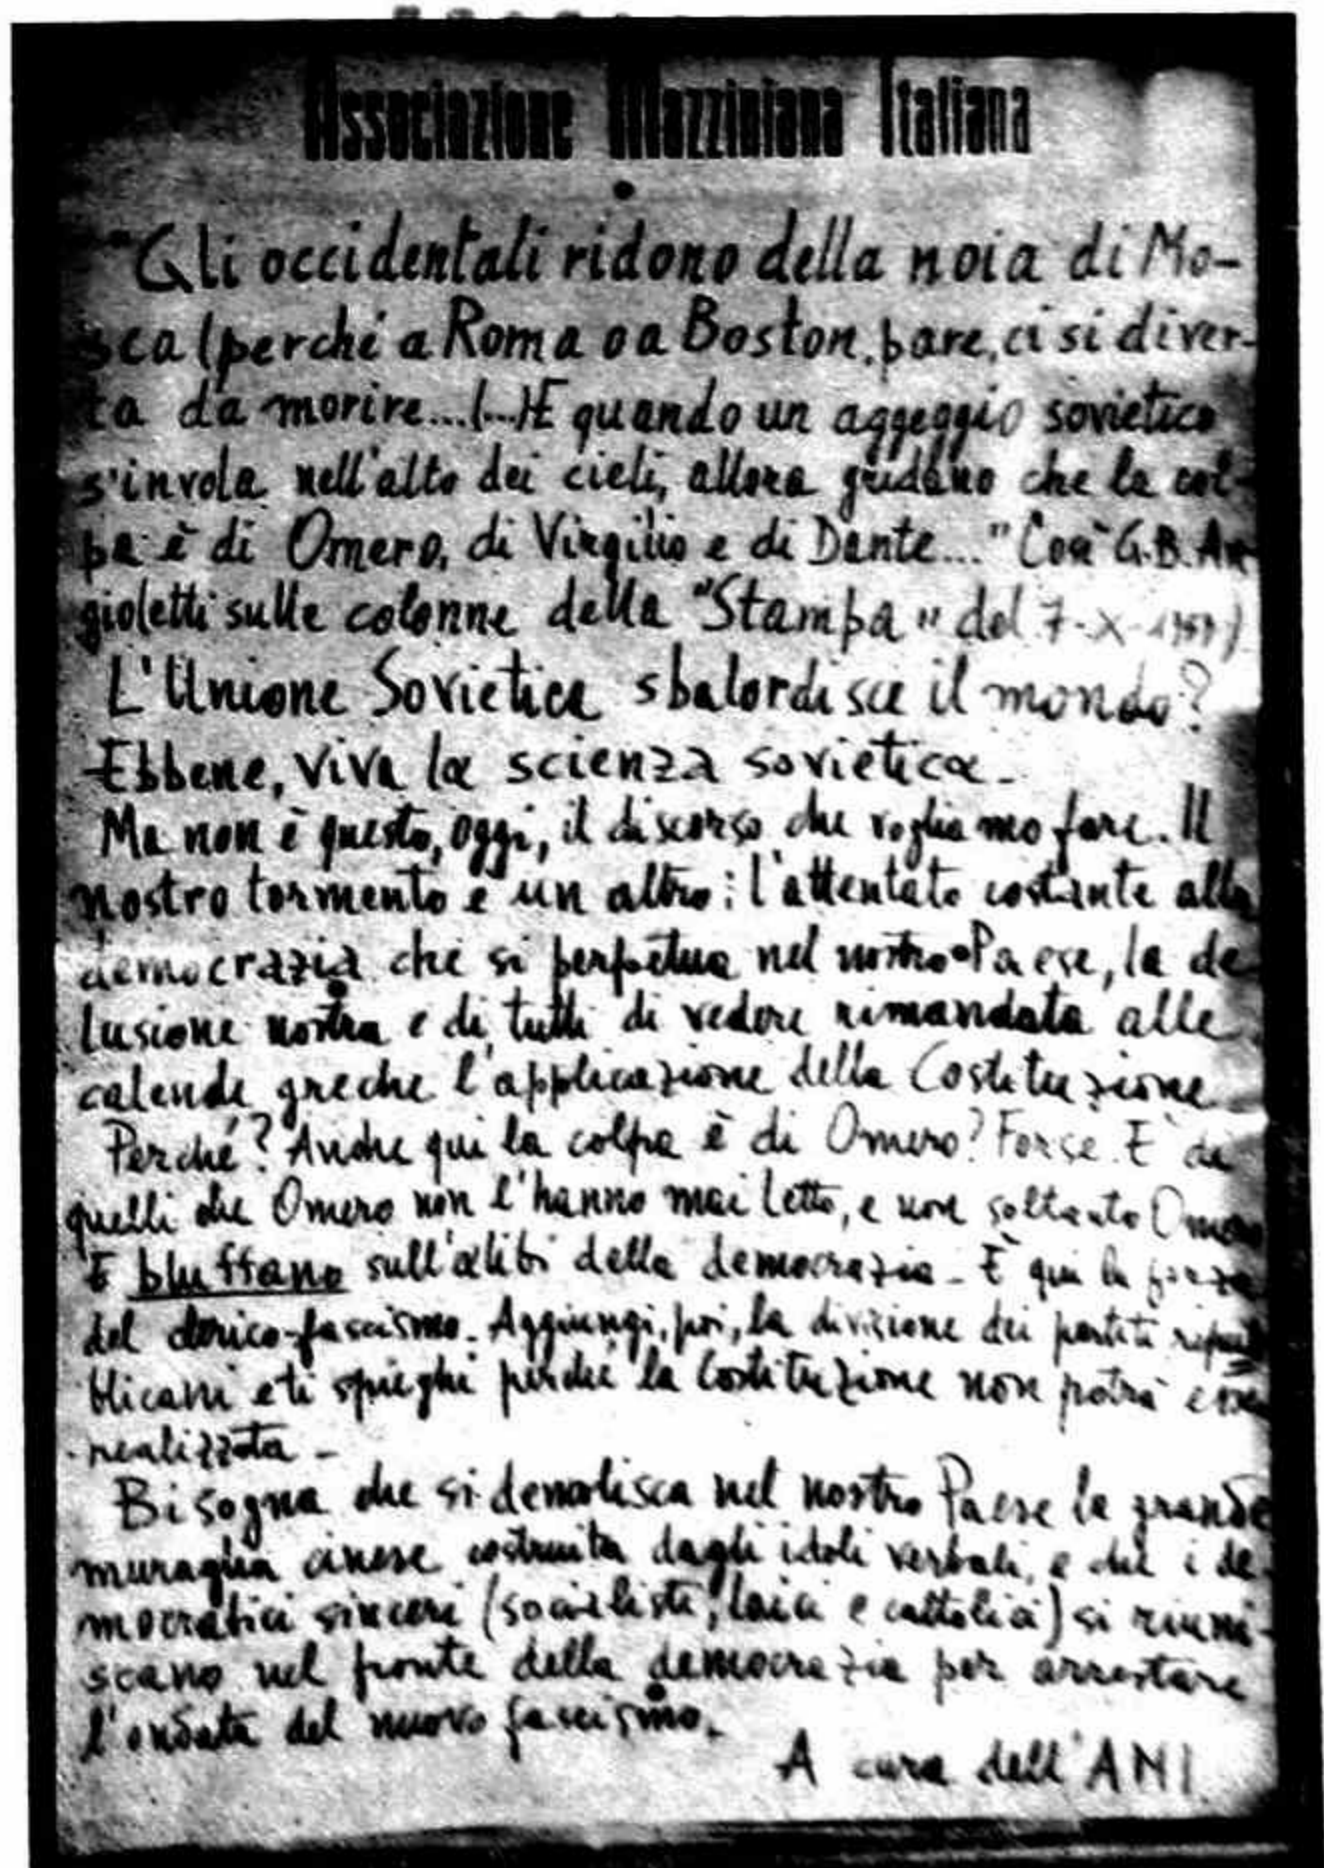 Associazione Mazziniana Italiana
"Gli occidentali ridono della noia di Mo-
sca (perché a Roma o a Boston, pare, ci si diver-
ta da morire...(...)E quando un aggeggio sovietico
s'invola nell'alto dei cieli, allora gridano che la col-
pa è di Omero, di Virgilio e di Dante..." Così G.B. An-
gioletti sulle colonne della "Stampa" del 7-X-1957)
L'Unione Sovietica sbalordisce il mondo?
Ebbene, viva la scienza sovietica.
Ma non è questo, oggi, il discorso che vogliamo fare. Il
nostro tormento è un altro: l'attentato costante alla
democrazia che si perpetua nel nostro Paese, la de
lusione nostra e di tutti di vedere rimandata alle
calende greche l'applicazione della Costituzione
Perché? Anche qui la colpa è di Omero? Forse. E di
quelli che Omero non l'hanno mai letto, e non soltanto Omero
E bluffano sull'alibi della democrazia - È qui la forza
del clerico-fascismo. Aggiungi, poi, la divisione dei partiti repub
blicani e ti spieghi perché la Costituzione non potrà essere
realizzata -
Bisogna che si demolisca nel nostro Paese la grande
muraglia cinese costruita dagli idoli verbali, e che i de
mocratici sinceri (socialisti, laici e cattolici) si riuni-
scano nel fronte della democrazia per arrestare
l'ondata del nuovo fascismo.
A cura dell'AMI